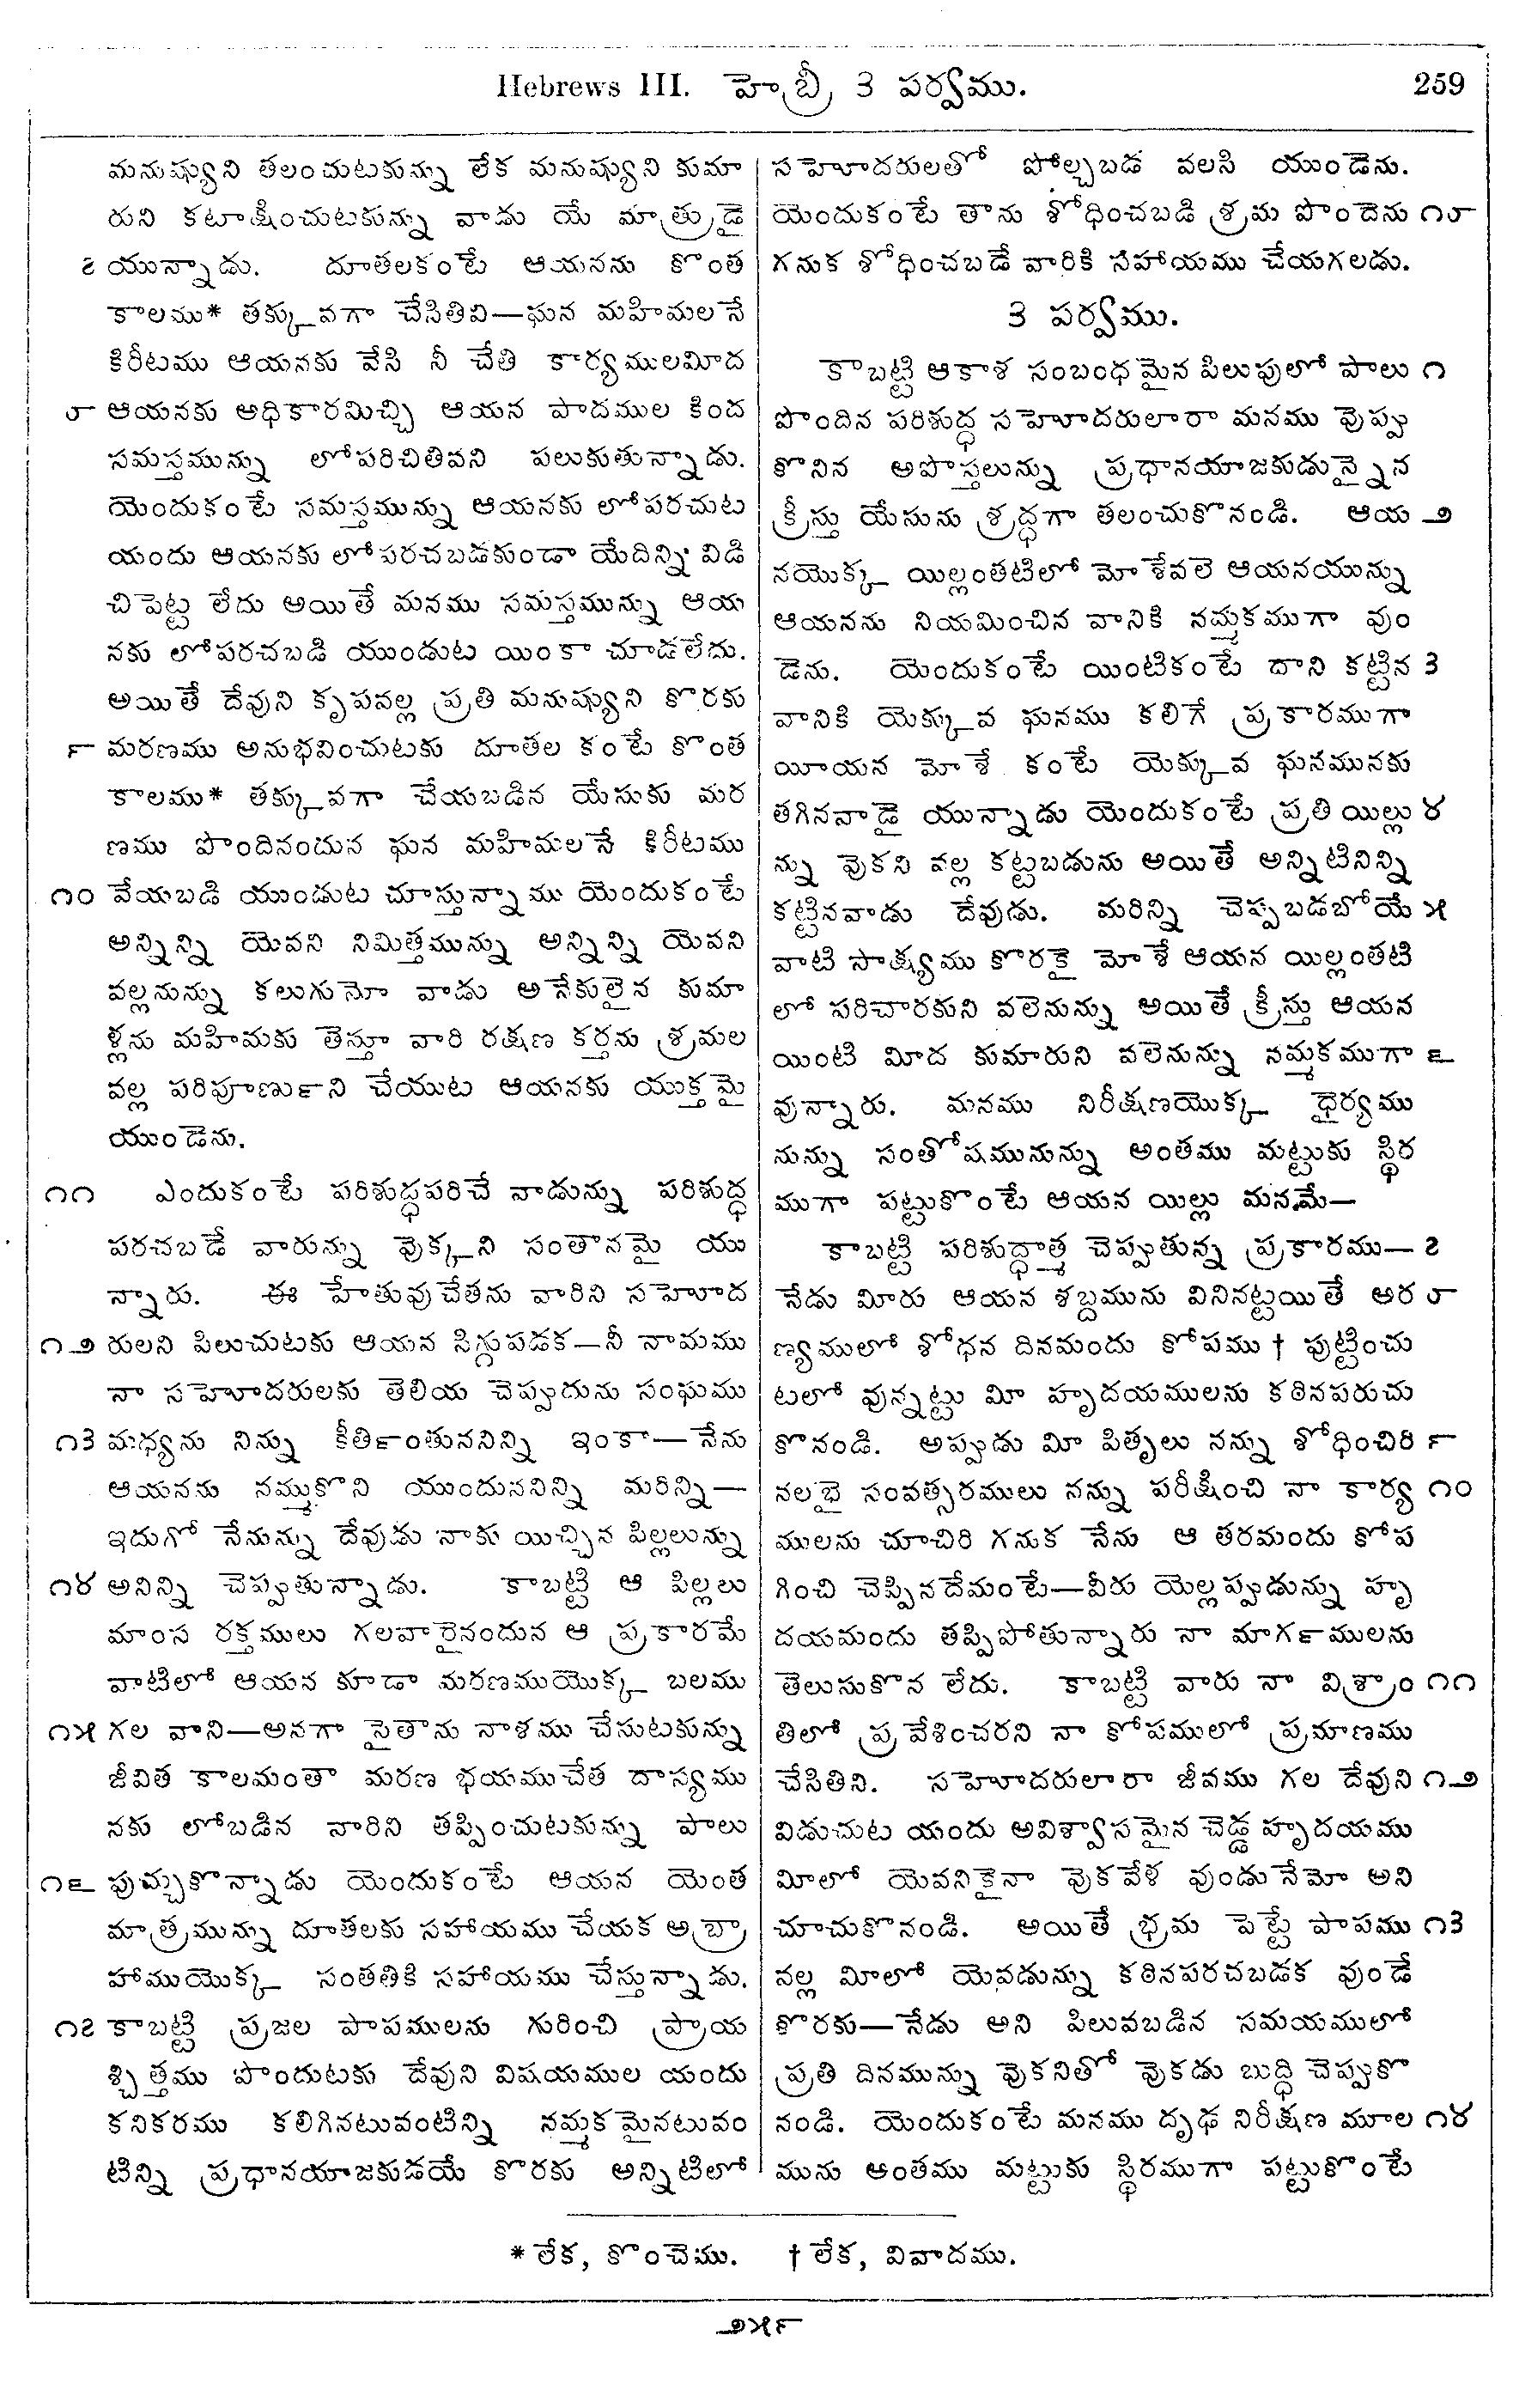 Hebrews III. హెబ్రీ 3 పర్వము. 259
మనుష్యుని తలంచుటకున్ను లేక మనుష్యుని కుమా
రుని కటాక్షించుటకున్ను వాడు యే మాత్రుడై
౭ యున్నాడు. దూతలకంటే ఆయనను కొంత
కాలము* తక్కువగా చేసితివి—ఘన మహిమలనే
కిరీటము ఆయనకు వేసి నీ చేతి కార్యములమీద
౮ ఆయనకు అధికారమిచ్చి ఆయన పాదముల కింద
సమస్తమున్ను లోపరిచితివని పలుకుతున్నాడు.
యెందుకంటే సమస్తమున్ను ఆయనకు లోపరచుట
యందు ఆయనకు లోపరచబడకుండా యేదిన్ని విడి
చిపెట్ట లేదు అయితే మనము సమస్తమున్ను ఆయ
నకు లోపరచబడి యుండుట యింకా చూడలేదు.
అయితే దేవుని కృపవల్ల ప్రతి మనుష్యుని కొరకు
౯ మరణము అనుభవించుటకు దూతల కంటే కొంత
కాలము* తక్కువగా చేయబడిన యేసుకు మర
ణము పొందినందున ఘన మహిమలనే కిరీటము
౧౦ వేయబడి యుండుట చూస్తున్నాము యెందుకంటే
అన్నిన్ని యెవని నిమిత్తమున్ను అన్నిన్ని యెవని
వల్లనున్ను కలుగునో వాడు అనేకులైన కుమా
ళ్లను మహిమకు తెస్తూ వారి రక్షణ కర్తను శ్రమల
వల్ల పరిపూణుఁని చేయుట ఆయనకు యుక్తమై
యుండెను.
౧౧ ఎందుకంటే పరిశుద్ధపరిచే వాడున్ను పరిశుద్ధ
పరచబడే వారున్ను వొక్కని సంతానమై యు
న్నారు. ఈ హేతువుచేతను వారిని సహోద
౧౨ రులని పిలుచుటకు ఆయన సిగ్గుపడక—నీ నామము
నా సహోదరులకు తెలియ చెప్పుదును సంఘము
౧3 మధ్యను నిన్ను కీతిౕంతుననిన్ని ఇంకా—నేను
ఆయనను నమ్ముకొని యుందుననిన్ని మరిన్ని—
ఇదుగో నేనున్ను దేవుడు నాకు యిచ్చిన పిల్లలున్ను
౧౪ అనిన్ని చెప్పుతున్నాడు. కాబట్టి ఆ పిల్లలు
మాంస రక్తములు గలవారైనందున ఆ ప్రకారమే
వాటిలో ఆయన కూడా మరణముయొక్క బలము
౧౫ గల వాని—అనగా సైతాను నాశము చేసుటకున్ను
జీవిత కాలమంతా మరణ భయముచేత దాస్యము
నకు లోబడిన వారిని తప్పించుటకున్ను పాలు
౧౬ పుచ్చుకొన్నాడు యెందుకంటే ఆయన యెంత
మాత్రమున్ను దూతలకు సహాయము చేయక అబ్రా
హాముయొక్క సంతతికి సహాయము చేస్తున్నాడు.
౧౭ కాబట్టి ప్రజల పాపములను గురించి ప్రాయ
శ్చిత్తము పొందుటకు దేవుని విషయముల యందు
కనికరము కలిగినటువంటిన్ని నమ్మకమైనటువం
టిన్ని ప్రధానయాజకుడయే కొరకు అన్నిటిలో
సహోదరులతో పోల్చబడ వలసి యుండెను.
యెందుకంటే తాను శోధించబడి శ్రమ పొందెను ౧౮
గనుక శోధించబడే వారికి సహాయము చేయగలడు.
3 పర్వము.
కాబట్టి ఆకాశ సంబంధమైన పిలుపులో పాలు ౧
పొందిన పరిశుద్ధ సహోదరులారా మనము వొప్పు
కొనిన అపొస్తలున్ను ప్రధానయాజకుడున్నైన
క్రీస్తు యేసును శ్రద్ధగా తలంచుకొనండి. ఆయ ౨
నయొక్క యిల్లంతటిలో మోశేవలె ఆయనయున్ను
ఆయనను నియమించిన వానికి నమ్మకముగా వుం
డెను. యెందుకంటే యింటికంటే దాని కట్టిన 3
వానికి యెక్కువ ఘనము కలిగే ప్రకారముగా
యీయన మోశే కంటే యెక్కువ ఘనమునకు
తగినవాడై యున్నాడు యెందుకంటే ప్రతి యిల్లు ౪
న్ను వొకని వల్ల కట్టబడును అయితే అన్నిటినిన్ని
కట్టినవాడు దేవుడు. మరిన్ని చెప్పబడబోయే ౫
వాటి సాక్ష్యము కొరకై మోశే ఆయన యిల్లంతటి
లో పరిచారకుని వలెనున్ను అయితే క్రీస్తు ఆయన
యింటి మీద కుమారుని వలెనున్ను నమ్మకముగా ౬
వున్నారు. మనము నిరీక్షణయొక్క ధైర్యము
నున్ను సంతోషమునున్ను అంతము మట్టుకు స్థిర
ముగా పట్టుకొంటే ఆయన యిల్లు మనమే—
కాబట్టి పరిశుద్ధాత్మ చెప్పుతున్న ప్రకారము— ౭
నేడు మీరు ఆయన శబ్దమును వినినట్టయితే అర ౮
ణ్యములో శోధన దినమందు కోపము † పుట్టించు
టలో వున్నట్టు మీ హృదయములను కఠినపరుచు
కొనండి. అప్పుడు మీ పితృలు నన్ను శోధించిరి ౯
నలభై సంవత్సరములు నన్ను పరీక్షించి నా కార్య ౧౦
ములను చూచిరి గనుక నేను ఆ తరమందు కోప
గించి చెప్పినదేమంటే—వీరు యెల్లప్పుడున్ను హృ
దయమందు తప్పిపోతున్నారు నా మాగౕములను
తెలుసుకొన లేదు. కాబట్టి వారు నా విశ్రాం ౧౧
తిలో ప్రవేశించరని నా కోపములో ప్రమాణము
చేసితిని. సహోదరులారా జీవము గల దేవుని ౧౨
విడుచుట యందు అవిశ్వాసమైన చెడ్డ హృదయము
మీలో యెవనికైనా వొకవేళ వుండునేమో అని
చూచుకొనండి. అయితే భ్రమ పెట్టే పాపము ౧3
వల్ల మీలో యెవడున్ను కఠినపరచబడక వుండే
కొరకు—నేడు అని పిలువబడిన సమయములో
ప్రతి దినమున్ను వొకనితో వొకడు బుద్ధి చెప్పుకొ
నండి. యెందుకంటే మనము దృఢ నిరీక్షణ మూల ౧౪
మును అంతము మట్టుకు స్థిరముగా పట్టుకొంటే
* లేక, కొంచెము. † లేక, వివాదము.
౨౫౯